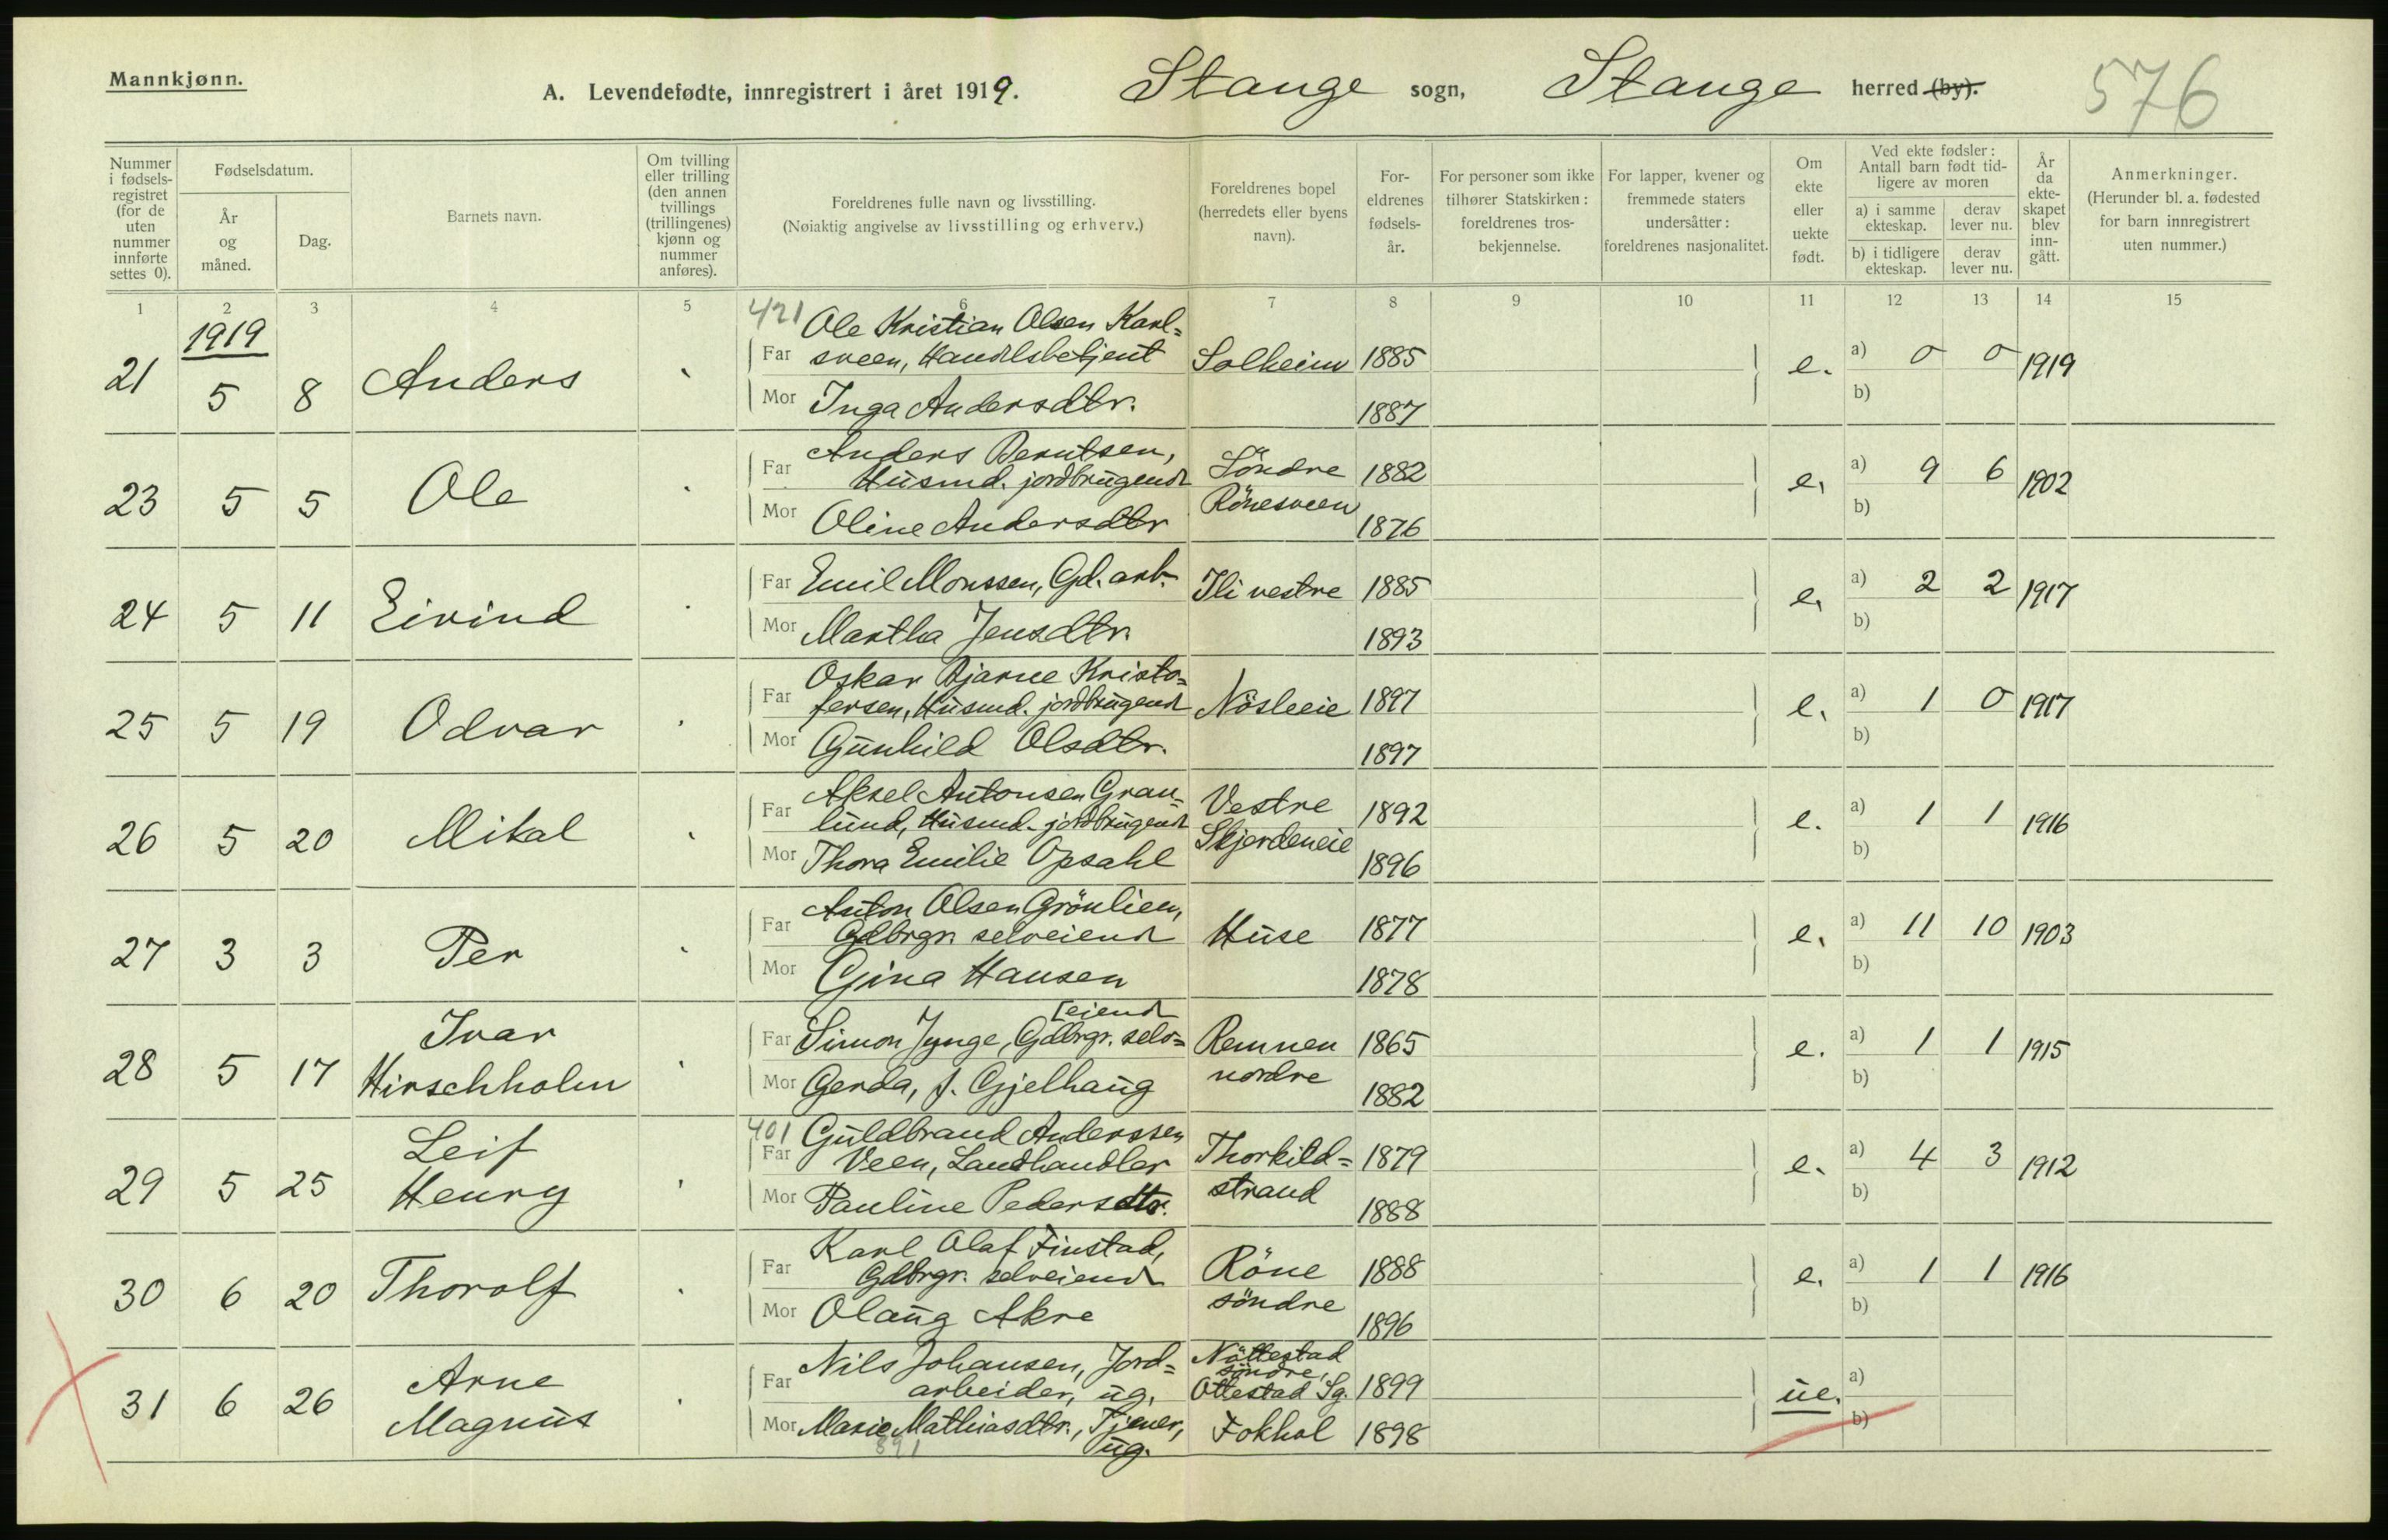 Mannkjønn.
A. Levendefødte, innregistrert i året 1919. Stange sogn, Stange herred (by). 576
Nummer i fødsels-registret (for de uten nummer innførte settes 0).
Fødselsdatum.
År og måned.
Dag.
Barnets navn.
Om tvilling eller trilling (den annen tvillings (trillingenes) kjønn og nummer anføres).
Foreldrenes fulle navn og livsstilling.
(Nøiaktig angivelse av livsstilling og erhverv.)
Foreldrenes bopel (herredets eller byens navn).
For-eldrenes fødsels-år.
For personer som ikke tilhører Statskirken: foreldrenes tros-bekjennelse.
For lapper, kvener og fremmede staters undersåtter: foreldrenes nasjonalitet.
Om ekte eller uekte født.
Ved ekte fødsler: Antall barn født tid-ligere av moren
a) i samme ekteskap. derav lever nu.
b) i tidligere ekteskap. derav lever nu.
År da ekte-skapet blev inn-gått.
Anmerkninger.
(Herunder bl. a. fødested for barn innregistrert uten nummer.)
1 2 3 4 5 6 7 8 9 10 11 12 13 14 15
1919
421 Ole Kristian Olsen Karl=
21 5 8 Anders Far sveen, Handlsbetjent Solheim 1885 e. a) 0 0 1919
Mor Inga Andersdtr. 1887 b)
Anders Berntsen,
23 5 5 Ole Far Husmd. jordbrugend Söndre Rönesveen 1882 e. a) 9 6 1902
Mor Oline Andersdtr 1876 b)
24 5 11 Eivind Far Emil Monssen, Gd. arb. Ili vestre 1885 e. a) 2 2 1917
Mor Martha Jensdtr. 1893 b)
Oskar Bjarne Kristo=
25 5 19 Odvar Far fersen, Husmd. jordbrugend Nösleeie 1897 e. a) 1 0 1917
Mor Gunhild Olsdtr. 1897 b)
Aksel Antonsen Gran=
26 5 20 Mikal Far lund, Husmd. jordbrugend Vestre Skjerdeneie 1892 e. a) 1 1 1916
Mor Thora Emilie Opsahl 1896 b)
Anton Olsen Grönlien,
27 3 3 Per Far Gdbrgr. selveiend Huse 1877 e. a) 11 10 1903
Mor Gina Hansen 1878 b)
[eiend
28 5 17 Ivar Hirschholm Far Simon Jynge, Gdbrgr. selv= Remmen nordre 1865 e. a) 1 1 1915
Mor Gerda, f. Gjelhaug 1882 b)
401 Guldbrand Anderssen
29 5 25 Leif Henry Far Veen, Landhandler Thorkild=strand 1879 e. a) 4 3 1912
Mor Pauline Pedersdtr. 1888 b)
Karl Olaf Finstad,
30 6 20 Thorolf Far Gdbrgr. selveiend Röne söndre 1888 e. a) 1 1 1916
Mor Olaug Akre 1896 b)
Nils Johansen, Jord=
31 6 26 Arne Magnus Far arbeider, ug. Nöttestad söndre, Ottestad Sg. 1899 ue. a)
Mor Marie Mathiasdtr., Tjener, ug. Fokhol 1898 b)
891